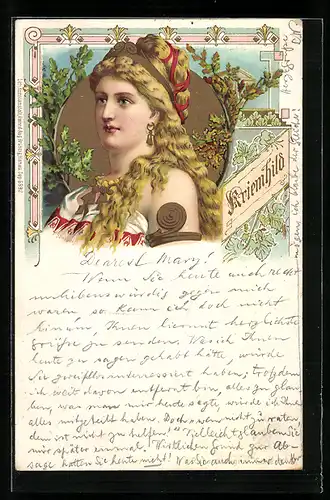 Kriemhild
Dearest Mary!
Wenn Sie heute auch recht
unliebenswürdig gegen mich
waren, so kann ich doch nicht
hinum, Ihnen hiermit herzlichste
Grüße zu senden. Was ich Ihnen
heute zu sagen gehabt hätte, würde
Sie großes interessiert haben; trotzdem
ich weit davon entfernt bin, alles zu glau-
ben, was man mir heute sagte, würde ich Ihnen
alles mitgeteilt haben. Doch wem nicht zu raten,
dem ist nicht zu helfen! Vielleicht glauben Sie
mir später einmal. Wirklichen Grund zur Ab-
sage hatten Sie heute nicht!